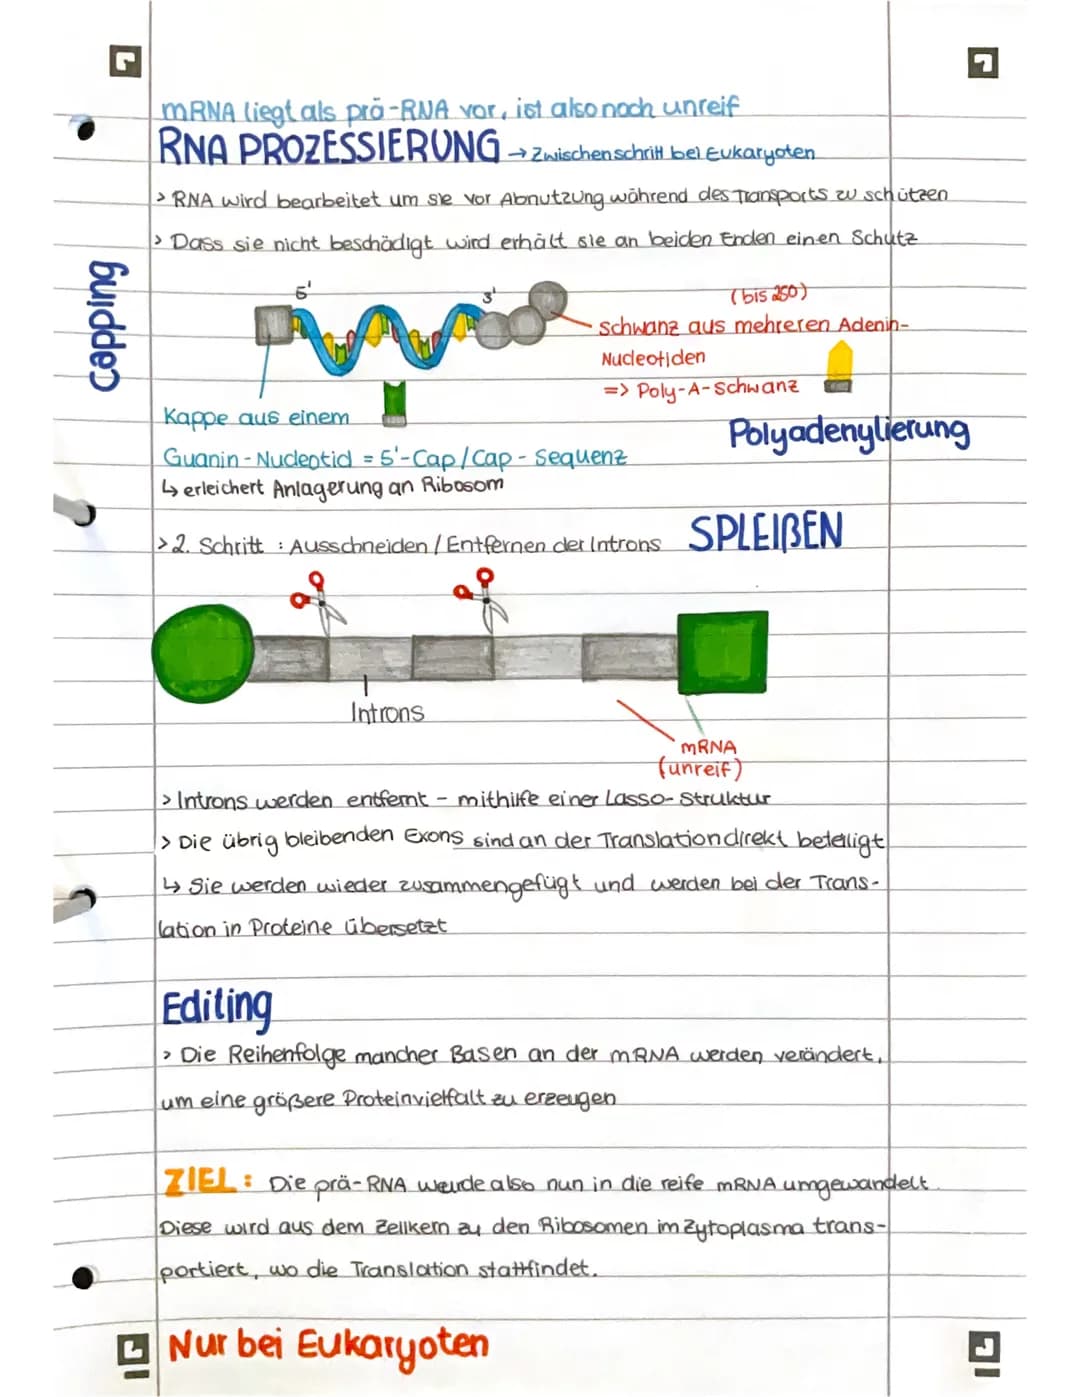 mRNA liegt als prä-RNA vor, ist also noch unreif
RNA PROZESSIERUNG → Zwischenschritt bei Eukaryoten
> RNA wird bearbeitet um sie vor Abnutzung während des Transports zu schützen
> Dass sie nicht beschädigt wird erhält sie an beiden Enden einen Schutz
Capping
5'
3'
(bis 250)
Schwanz aus mehreren Adenin-
Nucleotiden
=> Poly-A-Schwanz
Polyadenylierung
Kappe aus einem
Guanin-Nucleotid = 5'-Cap/Cap-Sequenz
↳ erleichert Anlagerung an Ribosom
> 2. Schritt : Ausschneiden / Entfernen der Introns
SPLEIßEN
Introns
mRNA
(unreif)
> Introns werden entfernt - mithilfe einer Lasso-Struktur
> Die übrig bleibenden Exons sind an der Translation direkt beteiligt
↳ Sie werden wieder zusammengefügt und werden bei der Trans-
lation in Proteine übersetzt
Editing
> Die Reihenfolge mancher Basen an der mRNA werden verändert,
um eine größere Proteinvielfalt zu erzeugen
ZIEL: Die prä-RNA wurde also nun in die reife mRNA umgewandelt.
Diese wird aus dem Zellkern zu den Ribosomen im Zytoplasma trans-
portiert, wo die Translation stattfindet.
Nur bei Eukaryoten